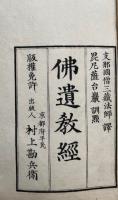 支那國僧三藏法師 譯
毘尼薩台巖 訓點
佛遺教經
京都府平民
出版人 村上勘兵衛
版權免許